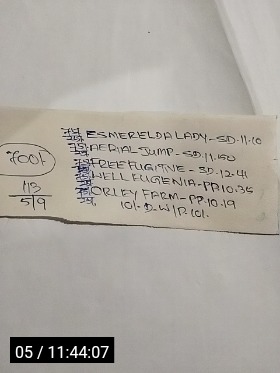 ESMERELDA LADY - SD. 11.10
AERIAL JUMP - SD. 11.
FREE FUGITIVE - SD. 12.41
NELL EUGENIA - PP. 10.
ORLEY FARM - PP. 10.19
10/- D-W/P. 10/-
7001
113
5/9
05 / 11:44:07